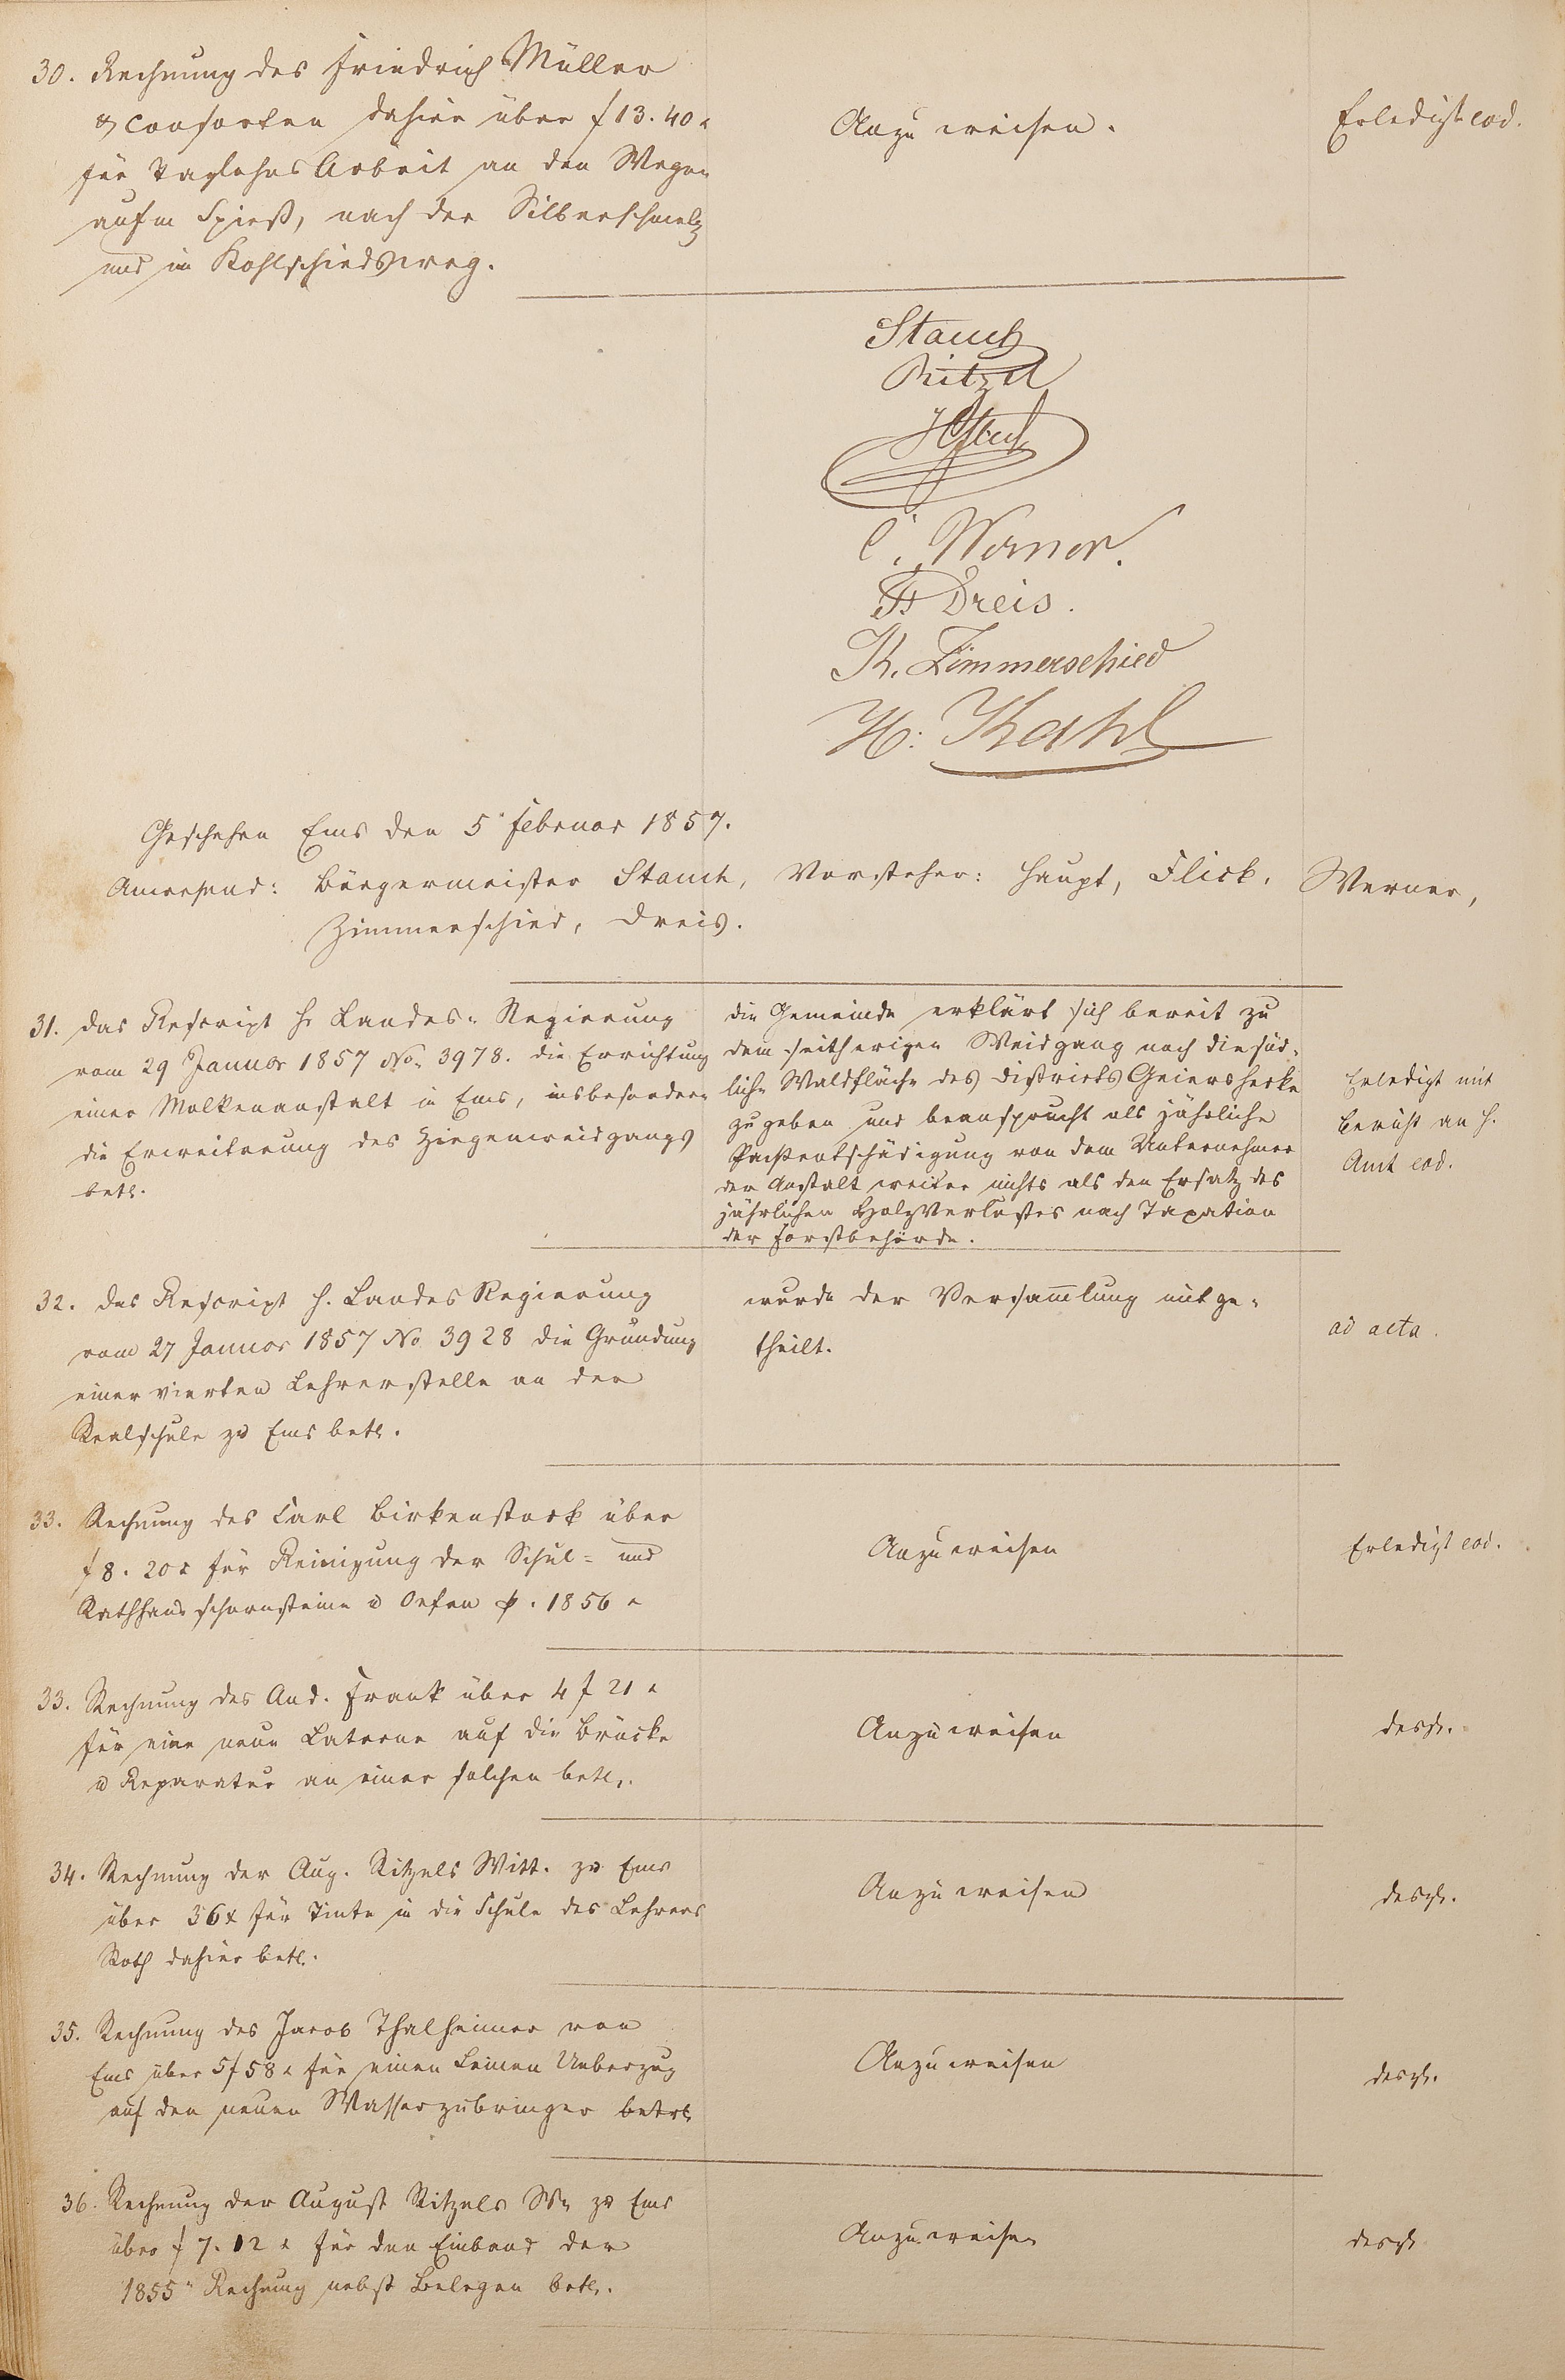 30. Rechnung des Friedrich Müller
& Consorten dahier über f 13. 40 x
für Taglohns Arbeit an den Wegen
aufm Spieß, nach der Silberschmelz
und im Kohlschiedsweg.
Anzuweisen.
Erledigt eod.
Stauch
Ritzel
C. Werner.
Fr Dreis.
K. Zimmerschied
H: Kahl
Geschehen Ems den 5t Februar 1857.
Anwesend: Bürgermeister Stauch, Vorsteher: Haupt, Flick, Werner,
Zimmerschied, Dreis.
31. das Rescript h. Landes-Regierung
vom 29 Januar 1857 No. 3978. die Errichtung
einer Molkenanstalt in Ems, insbesondere
die Erweiterung des Ziegenweidgangs
betr.
die Gemeinde erklärt sich bereit zu
dem seitherigen Weidgang noch die süd-
liche Waldfläche des Districts Geiershecke
zugeben und beansprucht als jährliche
Pachtentschädigung von dem Unternehmer
der Anstalt weiter nichts als den Ersatz des
jährlichen Holzverlustes nach Taxation
der Forstbehörde.
Erledigt mit
Bericht an h.
Amt eod.
32. das Rescript h. Landes Regierung
vom 27 Januar 1857 No 3928 die Gründung
einer vierten Lehrerstelle an der
Realschule zu Ems betr.
wurde der Versam̅lung mitge-
theilt.
ad acta.
33. Rechnung des Carl Birkenstock über
f 8. 20 x für Reinigung der Schul- und
Rathhausschornsteine u Oefen p. 1856
Anzuweisen
Erledigt eod.
33. Rechnung des And. Frank über 4 f 21 x
für eine neue Laterne auf die Brücke
u Reparatur an einer solchen betr.
Anzuweisen
desgl.
34. Rechnung der Aug. Ritzels Witt. zu Ems
über 36 x für Tinte in die Schule des Lehrers
Roth dahier betr.
Anzuweisen
desgl.
35. Rechnung des Jacob Thalheimer von
Ems über 5 f 58 x für einen Leinen Ueberzug
auf den neuen Wasserzubringer betr.
Anzuweisen
desgl.
36. Rechnung der August Ritzels We zu Ems
über f 7. 12 x für den Einband der
1855r Rechnung nebst Belegen betr.
Anzuweisen
desgl